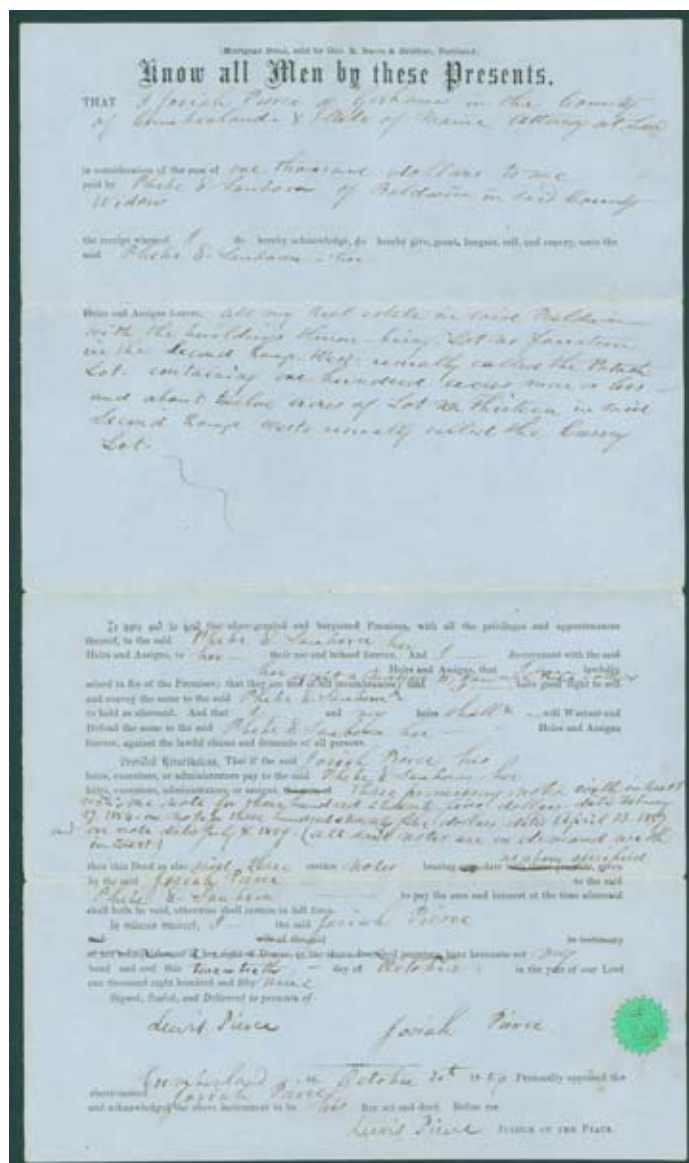 (Mortgage Deed, sold by Geo. R. Davis & Brother, Portland.)
Know all Men by these Presents,
THAT I Josiah Pierce of Gorham in the County
of Cumberland & State of Maine Attorney at Law
in consideration of the sum of one thousand dollars to me
paid by Phebe E Sanborn of Baldwin in said County
Widow
the receipt whereof I do hereby acknowledge, do hereby give, grant, bargain, sell, and convey, unto the
said Phebe E. Sanborn her
Heirs and Assigns forever, all my real estate in said Baldwin
with the buildings thereon being Lot no fourteen
in the Second Range West usually called the
Lot containing one hundred acres more or less
and about twelve acres of Lot no thirteen in said
Second Range West usually called the
Lot.
To have and to hold the above-granted and bargained Premises, with all the privileges and appurtenances
thereof, to the said Phebe E Sanborn her
Heirs and Assigns, to her their use and behoof forever. And I do covenant with the said
her Heirs and Assigns, that I am lawfully
seized in fee of the Premises; that they are free of all incumbrances; that have good right to sell
and convey the same to the said Phebe E Sanborn
to hold as aforesaid. And that I and my heirs shall & will Warrant and
Defend the same to the said Phebe E Sanborn her Heirs and Assigns
forever, against the lawful claims and demands of all persons.
Provided Nevertheless, That if the said Josiah Pierce his
heirs, executors, or administrators pay to the said Phebe E Sanborn her
heirs, executors, administrators, or assigns, three promissory notes with interest
one note for three hundred dollars
three hundred dollars date April
and one note date July (all said notes are on demand with
interest)
then this Deed as also said three certain notes bearing given
by the said Josiah Pierce to the said
Phebe E Sanborn to pay the sum and interest at the time aforesaid
shall both be void, otherwise shall remain in full force.
In witness whereof, I the said Josiah Pierce
in testimony
have hereunto set my
hand and seal this twentieth day of October in the year of our Lord
one thousand eight hundred and fifty nine
Signed, Sealed, and Delivered in presence of
Lewis Pierce Josiah Pierce
Cumberland ss October 20th 1859 Personally appeared the
above-named Josiah Pierce
and acknowledged the above instrument to be his free act and deed. Before me
Lewis Pierce JUSTICE OF THE PEACE.